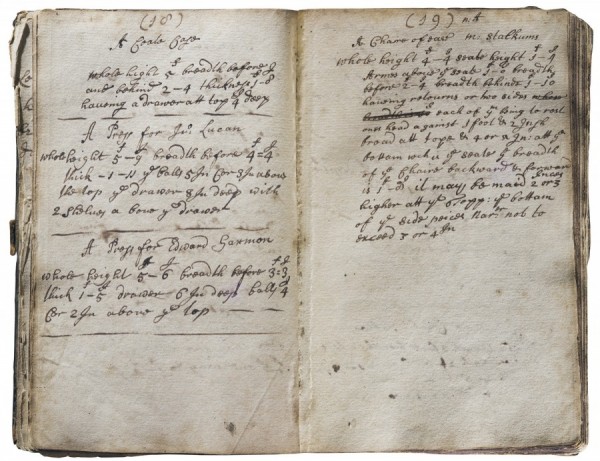 (18)
A Coate Case
whole hight 5 breadth before
and behind 2-4 thickness 1-8
having a drawer att top 4 deep
A Press for Jno: Lucan
whole height 5-9 breadth before 4=4
thick -1-11 ye balls 5 In Cor 3 In above
the top ye drawer 8 In deep with
2 Shelves a bove ye drawer
A Press for Edward Harmon
whole height 5-6 breadth before 3=3
thick 1-5 drawer 6 In deep balls 4
Cor 2 In above ye top
(19) n:A
A Chare of ease Mr: Stalkums
whole height 4-4 seate hight 1-4
Arms above ye seate 1-0 breadth
before 2-4 breadth behind 1-10
having retourns or two sides
each of ym being to rest
ones head against 1 foot & 2 Inch
broad att tope & 4 or a In: att ye
bottom with ye seate ye breadth
of ye Chaire backward & forward
is 1-9 it may be maid 2 or 3 Inces
higher att ye topp: ye bottom
of ye side peices Nar: not to
exceed 3 or 4 In